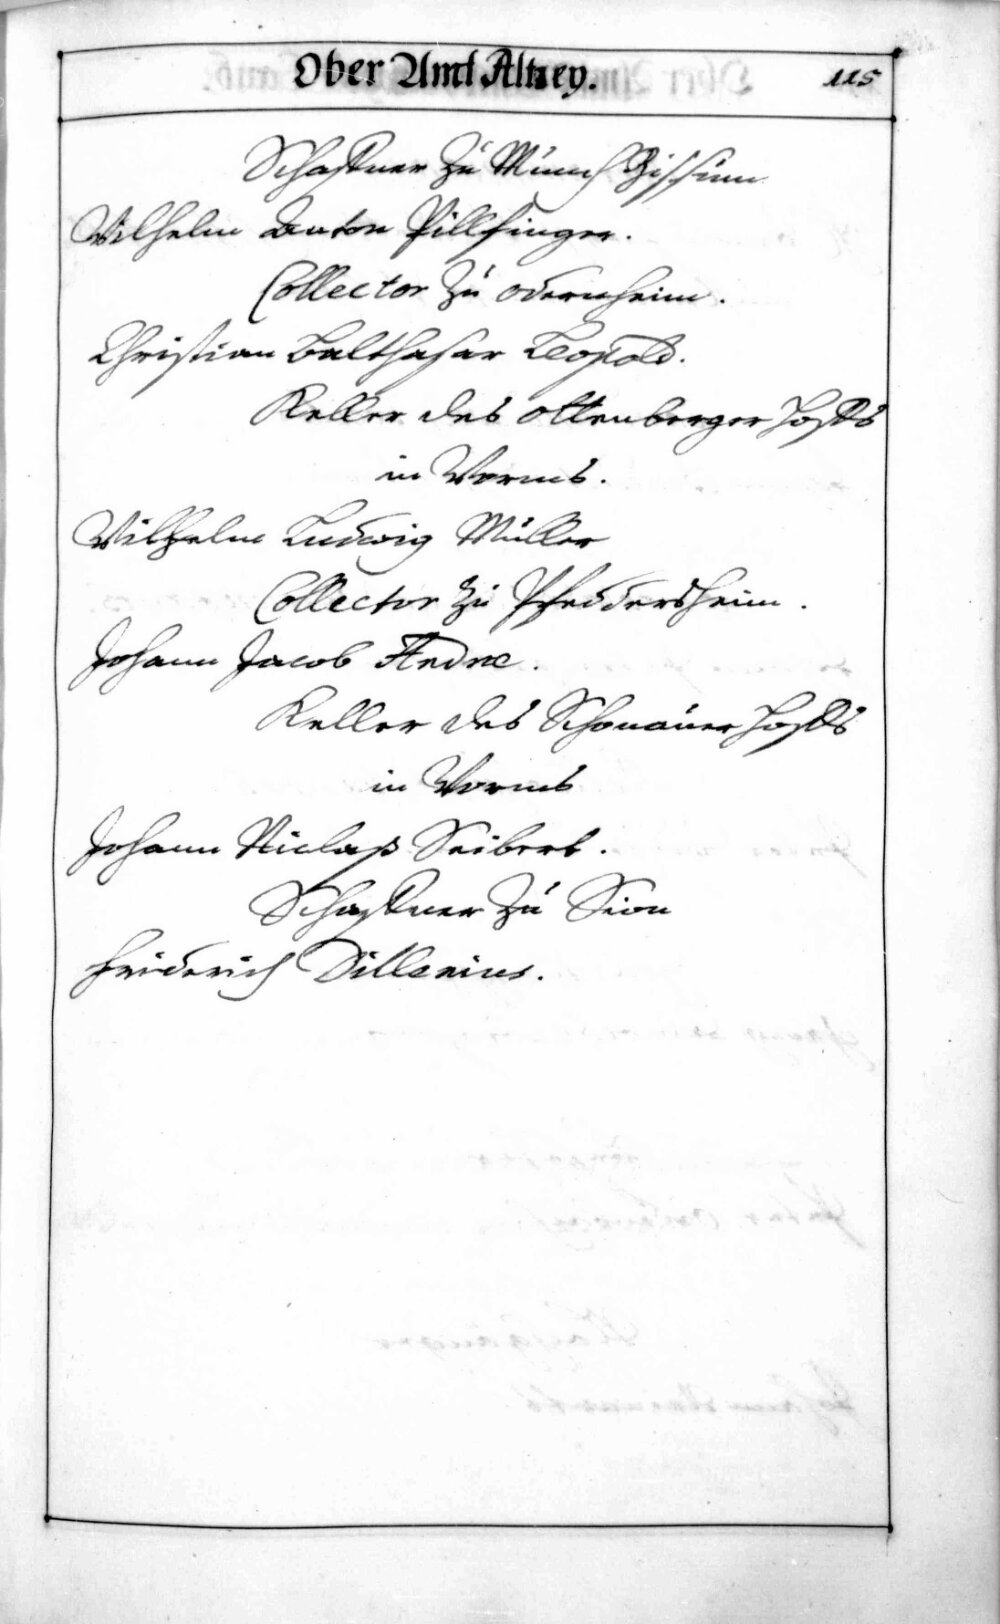 Ober Amt Altzey.
115
Schaffner zu Münch Bischeim
Wilhelm Anton Pillfinger.
Collector zu odernheim.
Christian Balthasar Leopold.
Keller des ottenberger Hoffs
in Worms.
Wilhelm Ludwig Müller
Collector zu Pfeddersheim.
Johann Jacob Andræ.
Keller des Schonauer Hoffs
in Worms
Johann Niclaß Seibert.
Schaffner zu Sion
Friderich Dillenius.